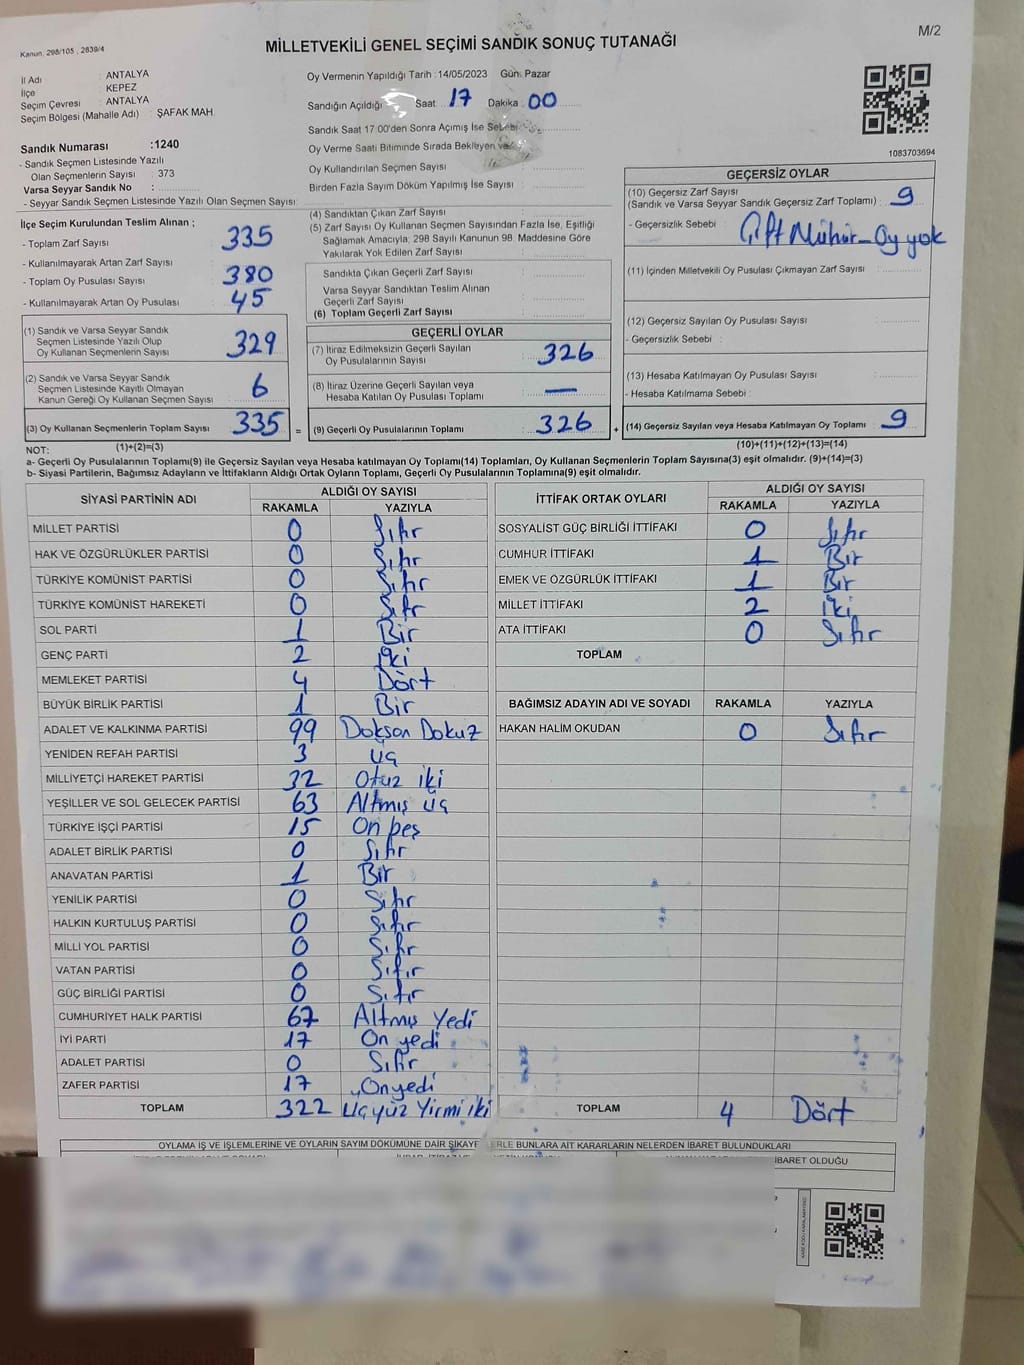 Kanun, 298/105 , 2839/4
M/2
MİLLETVEKİLİ GENEL SEÇİMİ SANDIK SONUÇ TUTANAĞI
İl Adı : ANTALYA
İlçe : KEPEZ
Seçim Çevresi : ANTALYA
Seçim Bölgesi (Mahalle Adı) : ŞAFAK MAH
Sandık Numarası :1240
- Sandık Seçmen Listesinde Yazılı
Olan Seçmenlerin Sayısı : 373
Varsa Seyyar Sandık No :
- Seyyar Sandık Seçmen Listesinde Yazılı Olan Seçmen Sayısı:
Oy Vermenin Yapıldığı Tarih :14/05/2023 Gün: Pazar
Sandığın Açıldığı Saat 17 Dakika 00
Sandık Saat 17:00'den Sonra Açımış İse Sebebi
Oy Verme Saati Bitiminde Sırada Bekleyen ve
Oy Kullandırılan Seçmen Sayısı
Birden Fazla Sayım Döküm Yapılmış İse Sayısı :
1083703694
İlçe Seçim Kurulundan Teslim Alınan ;
- Toplam Zarf Sayısı : 335
- Kullanılmayarak Artan Zarf Sayısı :
- Toplam Oy Pusulası Sayısı : 380
- Kullanılmayarak Artan Oy Pusulası : 45
(1) Sandık ve Varsa Seyyar Sandık
Seçmen Listesinde Yazılı Olup
Oy Kullanan Seçmenlerin Sayısı : 329
(2) Sandık ve Varsa Seyyar Sandık
Seçmen Listesinde Kayıtlı Olmayan
Kanun Gereği Oy Kullanan Seçmen Sayısı : 6
(3) Oy Kullanan Seçmenlerin Toplam Sayısı : 335 =
(1)+(2)=(3)
(4) Sandıktan Çıkan Zarf Sayısı :
(5) Zarf Sayısı Oy Kullanan Seçmen Sayısından Fazla İse, Eşitliği
Sağlamak Amacıyla; 298 Sayılı Kanunun 98. Maddesine Göre
Yakılarak Yok Edilen Zarf Sayısı :
Sandıkta Çıkan Geçerli Zarf Sayısı :
Varsa Seyyar Sandıktan Teslim Alınan
Geçerli Zarf Sayısı :
(6) Toplam Geçerli Zarf Sayısı :
GEÇERLİ OYLAR
(7) İtiraz Edilmeksizin Geçerli Sayılan
Oy Pusulalarının Sayısı : 326
(8) İtiraz Üzerine Geçerli Sayılan veya
Hesaba Katılan Oy Pusulası Toplamı : —
(9) Geçerli Oy Pusulalarının Toplamı : 326 +
GEÇERSİZ OYLAR
(10) Geçersiz Zarf Sayısı
(Sandık ve Varsa Seyyar Sandık Geçersiz Zarf Toplamı) : 9
- Geçersizlik Sebebi : Çift Mühür - Oy yok
(11) İçinden Milletvekili Oy Pusulası Çıkmayan Zarf Sayısı :
(12) Geçersiz Sayılan Oy Pusulası Sayısı :
- Geçersizlik Sebebi :
(13) Hesaba Katılmayan Oy Pusulası Sayısı :
- Hesaba Katılmama Sebebi :
(14) Geçersiz Sayılan veya Hesaba Katılmayan Oy Toplamı : 9
(10)+(11)+(12)+(13)=(14)
NOT:
a- Geçerli Oy Pusulalarının Toplamı(9) ile Geçersiz Sayılan veya Hesaba katılmayan Oy Toplamı(14) Toplamları, Oy Kullanan Seçmenlerin Toplam Sayısına(3) eşit olmalıdır. (9)+(14)=(3)
b- Siyasi Partilerin, Bağımsız Adayların ve İttifakların Aldığı Ortak Oyların Toplamı, Geçerli Oy Pusulalarının Toplamına(9) eşit olmalıdır.
SİYASİ PARTİNİN ADI ALDIĞI OY SAYISI
RAKAMLA YAZIYLA
MİLLET PARTİSİ 0 Sıfır
HAK VE ÖZGÜRLÜKLER PARTİSİ 0 Sıfır
TÜRKİYE KOMÜNİST PARTİSİ 0 Sıfır
TÜRKİYE KOMÜNİST HAREKETİ 0 Sıfır
SOL PARTİ 1 Bir
GENÇ PARTİ 2 iki
MEMLEKET PARTİSİ 4 Dört
BÜYÜK BİRLİK PARTİSİ 1 Bir
ADALET VE KALKINMA PARTİSİ 99 Doksan Dokuz
YENİDEN REFAH PARTİSİ 3 üç
MİLLİYETÇİ HAREKET PARTİSİ 32 Otuz iki
YEŞİLLER VE SOL GELECEK PARTİSİ 63 Altmış üç
TÜRKİYE İŞÇİ PARTİSİ 15 On beş
ADALET BİRLİK PARTİSİ 0 Sıfır
ANAVATAN PARTİSİ 1 Bir
YENİLİK PARTİSİ 0 Sıfır
HALKIN KURTULUŞ PARTİSİ 0 Sıfır
MİLLİ YOL PARTİSİ 0 Sıfır
VATAN PARTİSİ 0 Sıfır
GÜÇ BİRLİĞİ PARTİSİ 0 Sıfır
CUMHURİYET HALK PARTİSİ 67 Altmış Yedi
İYİ PARTİ 17 On yedi
ADALET PARTİSİ 0 Sıfır
ZAFER PARTİSİ 17 Onyedi
TOPLAM 322 Üçyüz Yirmi iki
İTTİFAK ORTAK OYLARI ALDIĞI OY SAYISI
RAKAMLA YAZIYLA
SOSYALİST GÜÇ BİRLİĞİ İTTİFAKI 0 Sıfır
CUMHUR İTTİFAKI 1 Bir
EMEK VE ÖZGÜRLÜK İTTİFAKI 1 Bir
MİLLET İTTİFAKI 2 iki
ATA İTTİFAKI 0 Sıfır
TOPLAM
BAĞIMSIZ ADAYIN ADI VE SOYADI RAKAMLA YAZIYLA
HAKAN HALİM OKUDAN 0 Sıfır
TOPLAM 4 Dört
OYLAMA İŞ VE İŞLEMLERİNE VE OYLARIN SAYIM DÖKÜMÜNE DAİR ŞİKAYE ERLE BUNLARA AİT KARARLARIN NELERDEN İBARET BULUNDUKLARI
İBARET OLDUĞU